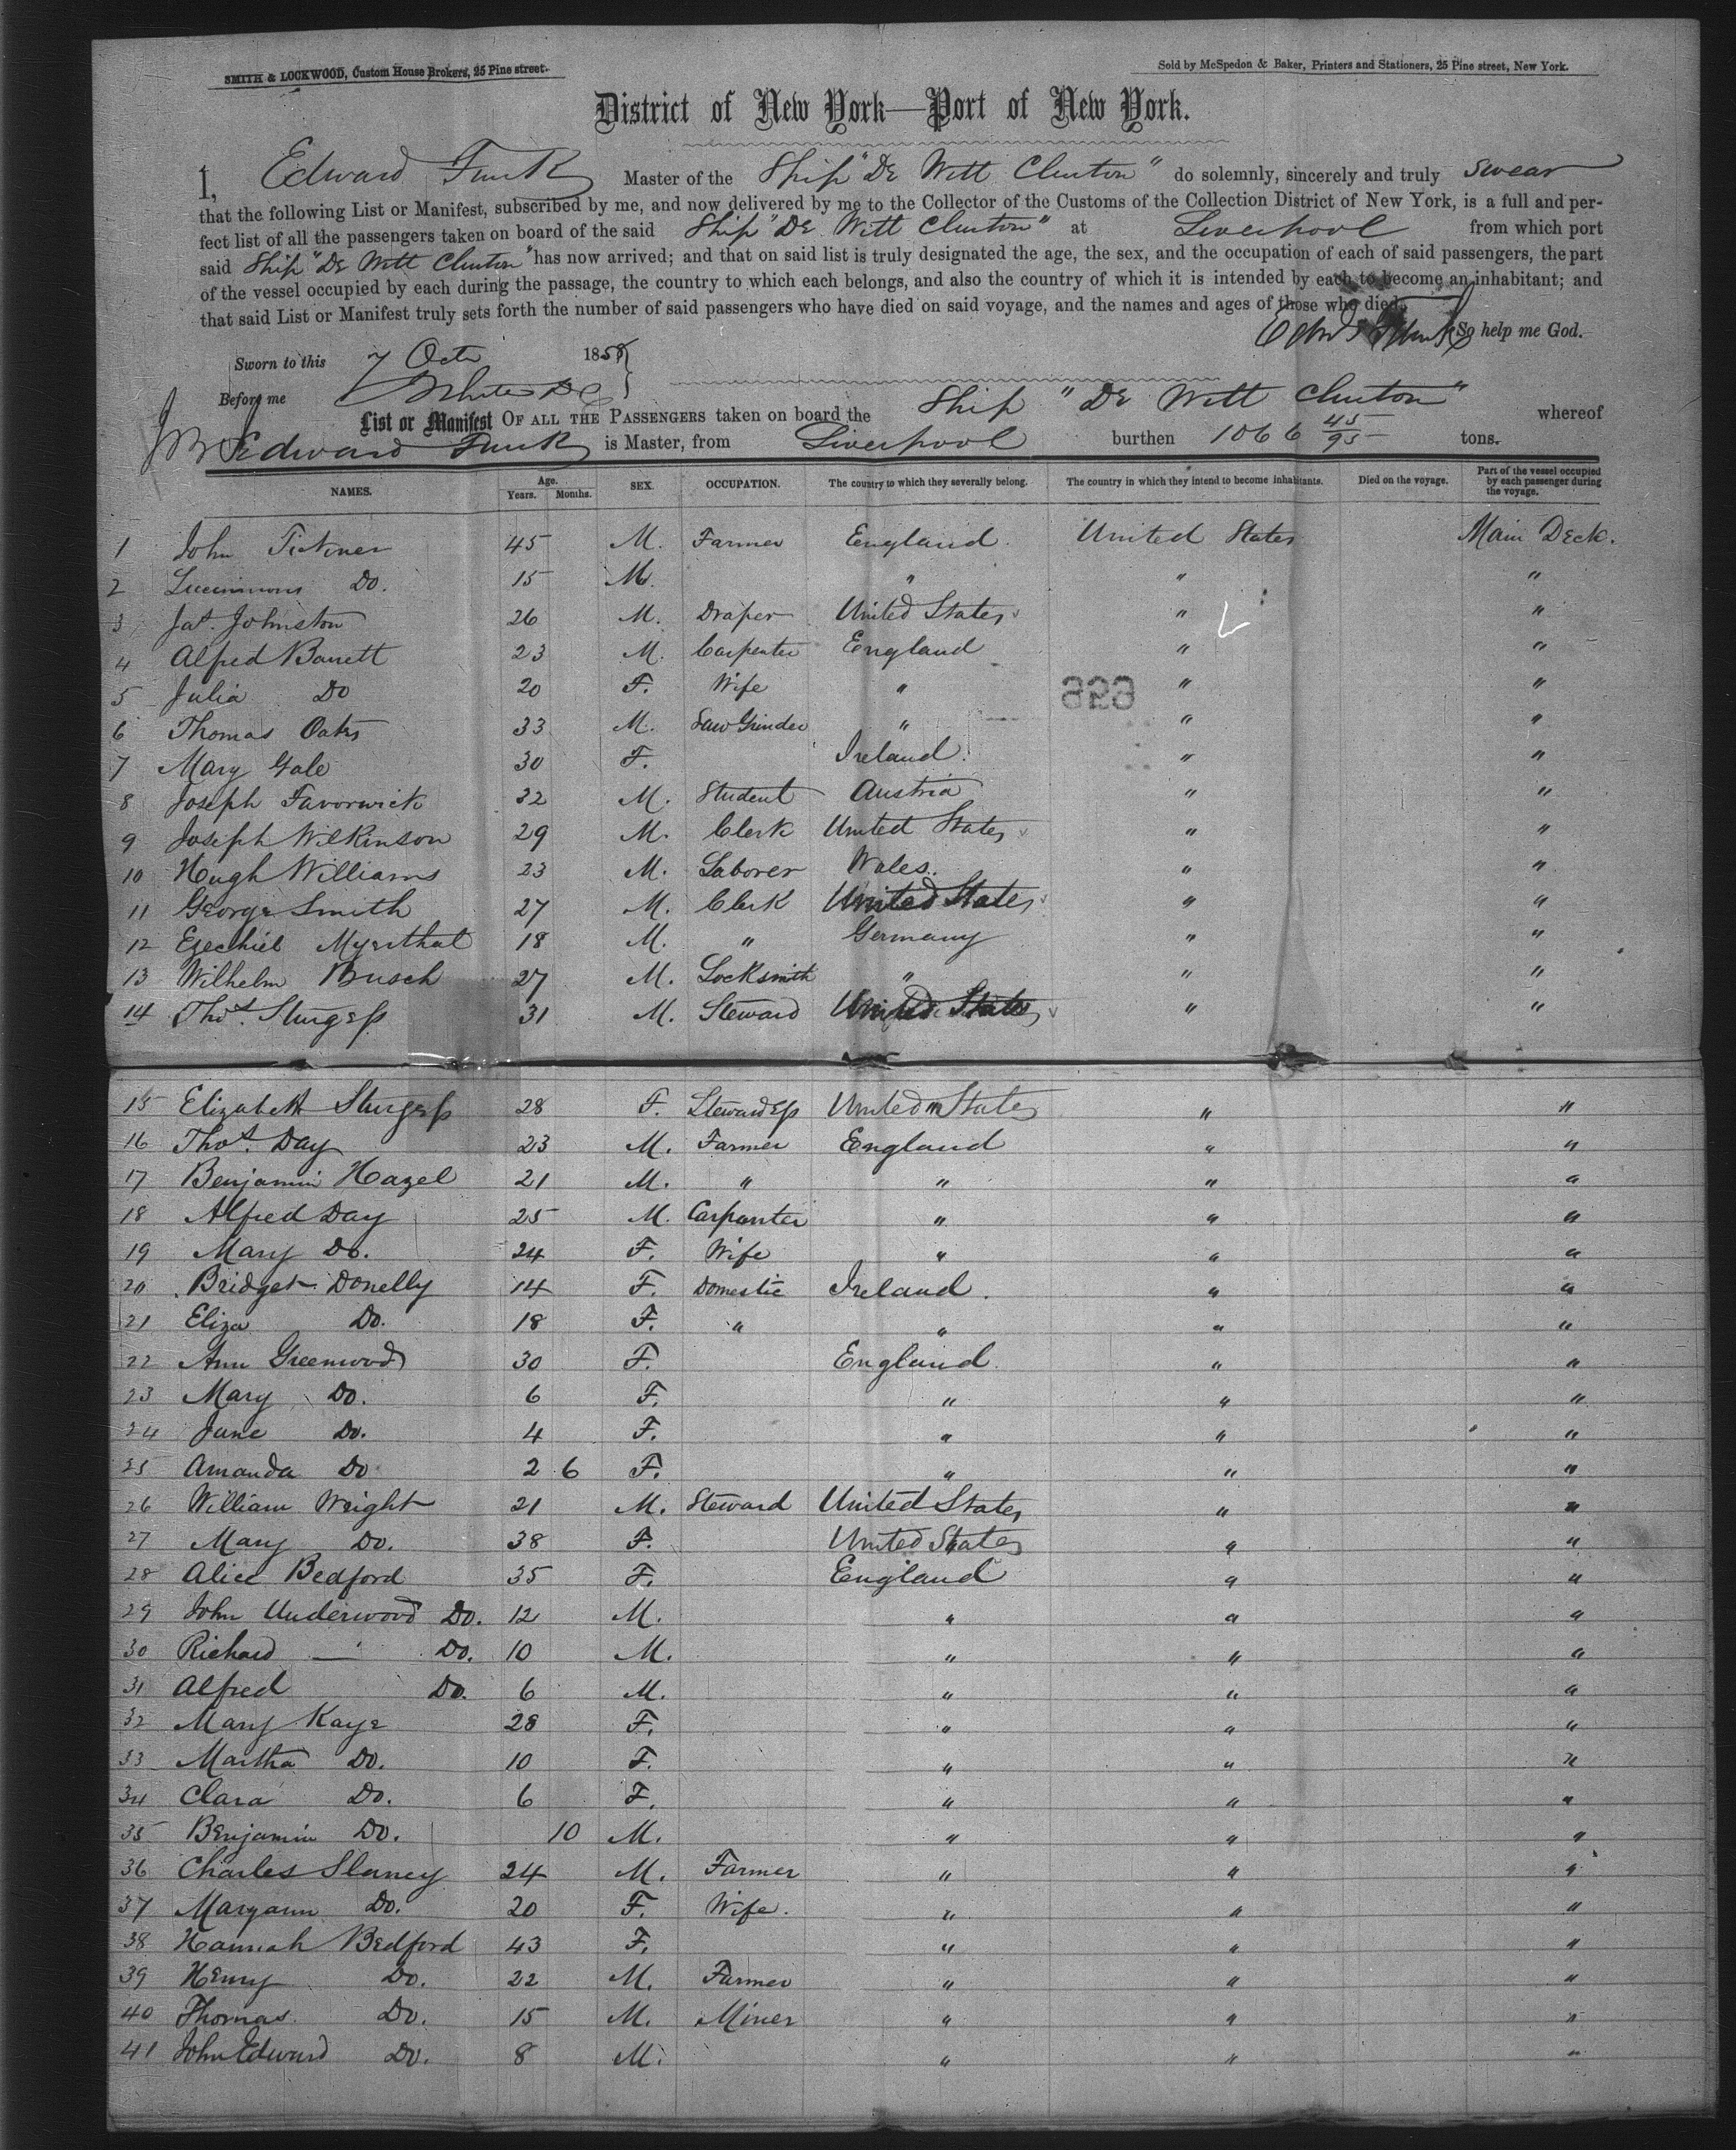 SMITH & LOCKWOOD, Custom House Brokers, 25 Pine street.
Sold by McSpedon & Baker, Printers and Stationers, 25 Pine street, New York.
District of New York—Port of New York.
I, Edward Funk Master of the Ship "De Witt Clinton" do solemnly, sincerely and truly swear
that the following List or Manifest, subscribed by me, and now delivered by me to the Collector of the Customs of the Collection District of New York, is a full and per-
fect list of all the passengers taken on board of the said Ship "De Witt Clinton" at Liverpool from which port
said Ship "De Witt Clinton" has now arrived; and that on said list is truly designated the age, the sex, and the occupation of each of said passengers, the part
of the vessel occupied by each during the passage, the country to which each belongs, and also the country of which it is intended by each to become an inhabitant; and
that said List or Manifest truly sets forth the number of said passengers who have died on said voyage, and the names and ages of those who died.
Edwd Funk So help me God.
Sworn to this 7 Octr 1858
Before me
List or Manifest OF ALL THE PASSENGERS taken on board the Ship "De Witt Clinton" whereof
Edward Funk is Master, from Liverpool burthen 1066 45/95 tons.
NAMES. Age. Years. Months. SEX. OCCUPATION. The country to which they severally belong. The country in which they intend to become inhabitants. Died on the voyage. Part of the vessel occupied by each passenger during the voyage.
1 John Tickner 45 M. Farmer England. United States Main Deck.
2 Do. 15 M. " " "
3 Jas. Johnston 26 M. Draper United States " "
4 Alfred Barrett 23 M. Carpenter England " "
5 Julia Do 20 F. Wife " " "
6 Thomas Oates 33 M. Saw Grinder " " "
7 Mary Gale 30 F. Ireland. " "
8 Joseph Favorwick 32 M. Student Austria " "
9 Joseph Wilkinson 29 M. Clerk United States " "
10 Hugh Williams 23 M. Laborer Wales. " "
11 George Smith 27 M. Clerk United States " "
12 Ezechiel Myerthal 18 M. " Germany " "
13 Wilhelm Busch 27 M. Locksmith " " "
14 Thos. Sturgess 31 M. Steward United States " "
15 Elizabeth Sturgess 28 F. Stewardess United States " "
16 Thos. Day 23 M. Farmer England " "
17 Benjamin Hazel 21 M. " " " "
18 Alfred Day 25 M. Carpenter " " "
19 Mary Do. 24 F. Wife " " "
20 Bridget Donelly 14 F. Domestic Ireland. " "
21 Eliza Do. 18 F. " " " "
22 Ann Greenwood 30 F. England. " "
23 Mary Do. 6 F. " " "
24 Jane Do. 4 F. " " "
25 Amanda Do 2 6 F. " " "
26 William Wright 21 M. Steward United States " "
27 Mary Do. 38 F. United States " "
28 Alice Bedford 35 F. England " "
29 John Underwood Do. 12 M. " " "
30 Richard — Do. 10 M. " " "
31 Alfred Do. 6 M. " " "
32 Mary Kaye 28 F. " " "
33 Martha Do. 10 F. " " "
34 Clara Do. 6 F. " " "
35 Benjamin Do. 10 M. " " "
36 Charles Slaney 24 M. Farmer " " "
37 Maryann Do. 20 F. Wife. " " "
38 Hannah Bedford 43 F. " " "
39 Henry Do. 22 M. Farmer " " "
40 Thomas. Do. 15 M. Miner " " "
41 John Edward Do. 8 M. " " "